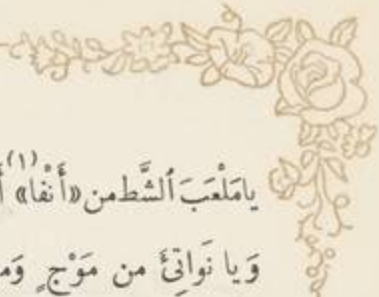 يا مَلْعَبَ ٱلشَّطِ من «أَنْفَا» (١)
وَيا نَواتِئَ من مَوْجٍ